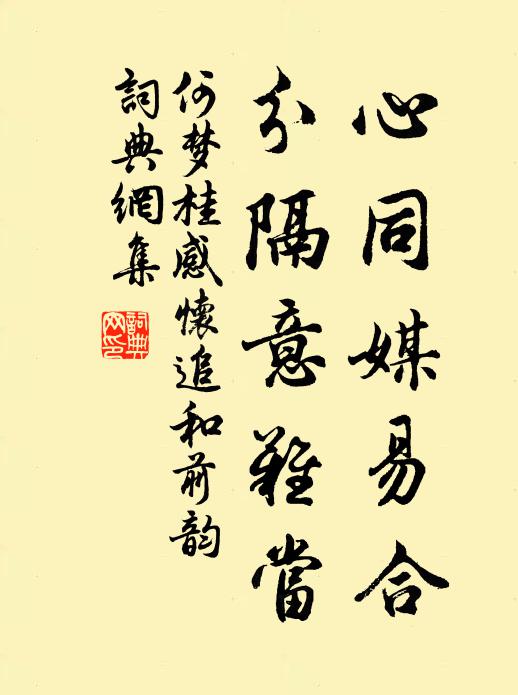 心同媒易合
分隔意難當
何梦桂感懷追和前韵
詞典網集
詞典網印